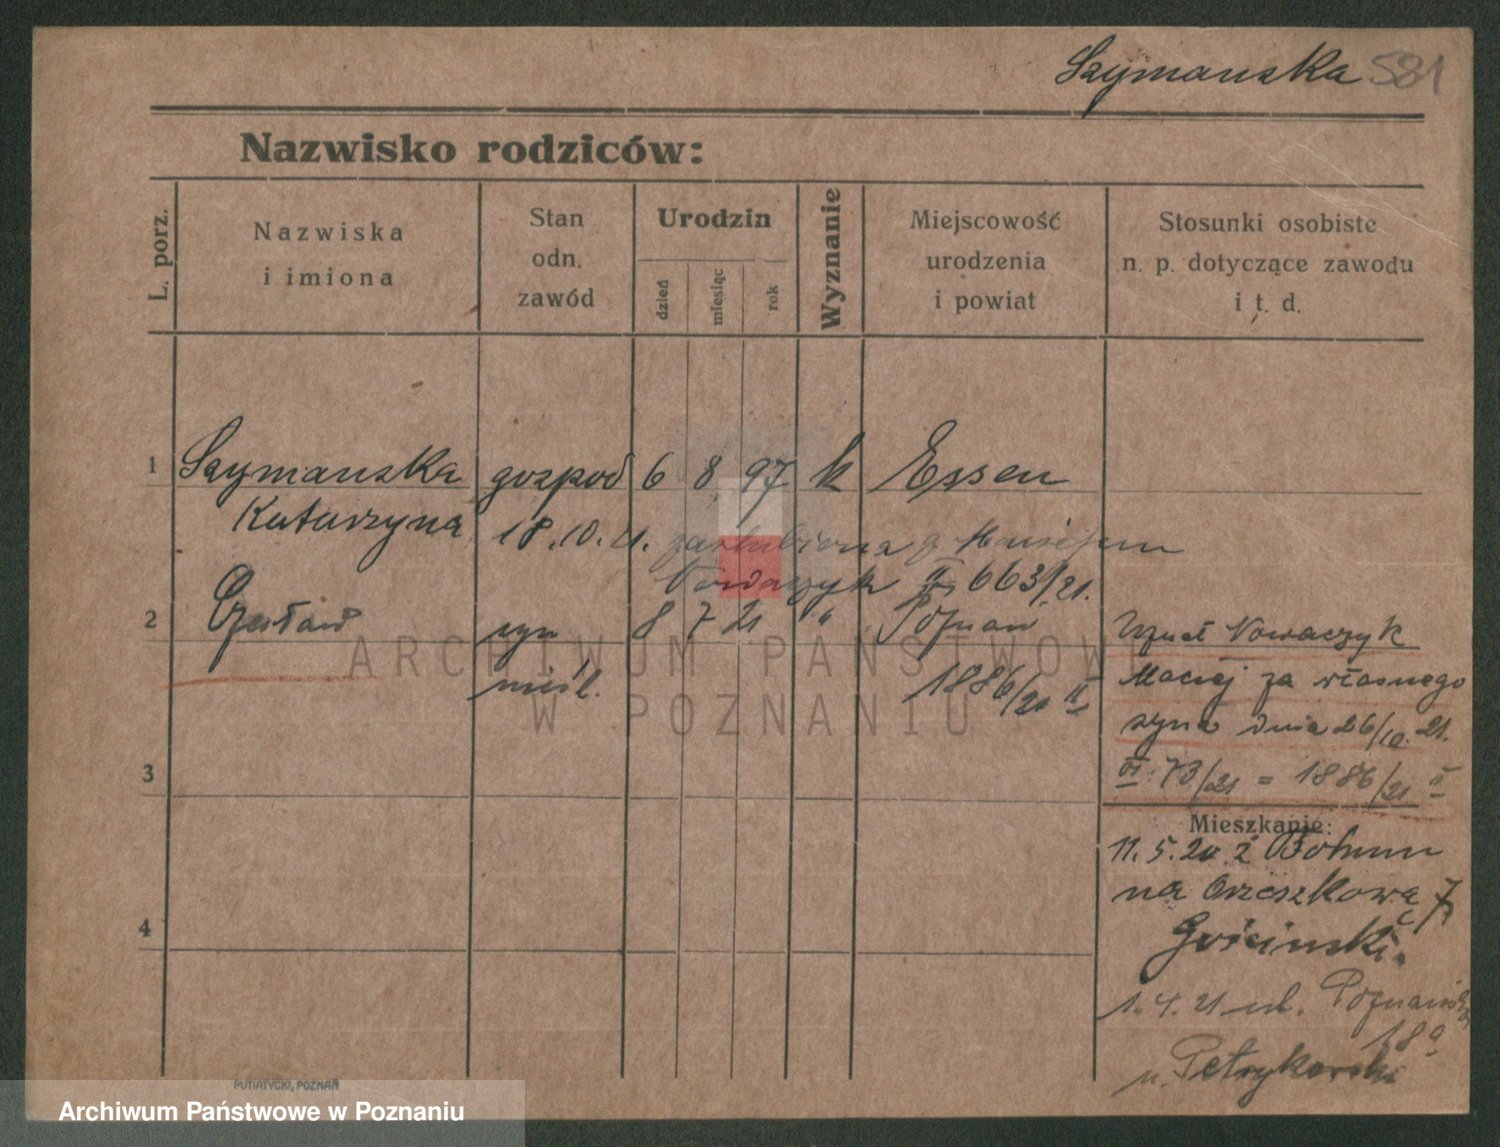 Szymanska 581
Nazwisko rodziców:
L. porz.
Nazwiska
i imiona
Stan
odn.
zawód
Urodzin
dzień
miesiąc
rok
Wyznanie
Miejscowość
urodzenia
i powiat
Stosunki osobiste
n. p. dotyczące zawodu
i t. d.
1 Szymanska gospod 6 8 97 k Essen
Katarzyna 18.10.21. zaslubiona z Maciejem
Nowaczyk II 663/21.
2 Czesław syn 8 7 21 " Poznan
nieśl. 1886/21 II
Uznał Nowaczyk
Maciej za własnego
syna dnia 26/10. 21.
VI 73/21 = 1886/21 II
3
4
Mieszkanie:
11.5.20 z Bochum
na Orzeszkowa 7
Gościnski.
1.4.21 ul. Poznańska
18a
u. Petrykowski
ARCHIWUM PAŃSTWOWE
W POZNANIU
PUTIATYCKI, POZNAŃ
Archiwum Państwowe w Poznaniu